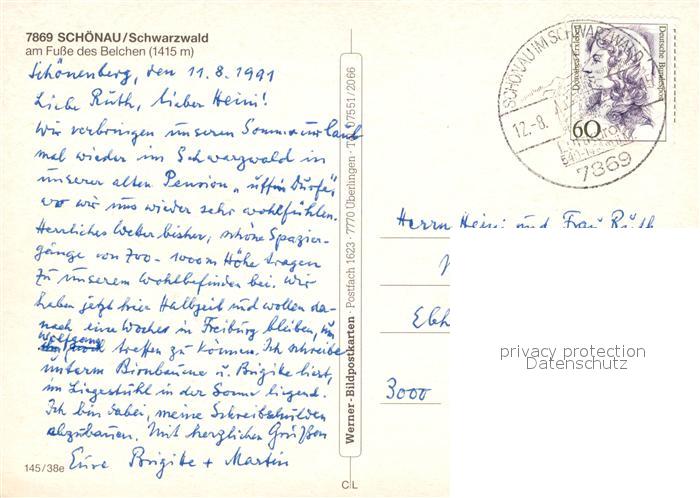 7869 SCHÖNAU/Schwarzwald
am Fuße des Belchen (1415 m)
Schönenberg, den 11.8.1991
Liebe Ruth, lieber Heini!
Wir verbringen unseren Sommerurlaub
mal wieder im Schwarzwald in
unserer alten Pension „uffm Dürfe",
wo wir uns wieder sehr wohlfühlen.
Herrliches Wetter bisher, schöne Spazier-
gänge von 700 - 1000 m Höhe tragen
zu unserem Wohlbefinden bei. Wir
haben jetzt hier Halbzeit und wollen da-
nach eine Woche in Freiburg bleiben, um
Wolfgang
treffen zu können. Ich schreibe
unterm Birnbaum u. Brigitte liest,
im Liegestuhl in der Sonne liegend.
Ich bin dabei, meine Schreibschulden
abzubauen. Mit herzlichen Grüßen
Eure Brigitte + Martin
145/38e
Werner-Bildpostkarten Postfach 1623 · 7770 Überlingen · Tel. 07551/2066
C L
SCHÖNAU IM SCHWARZWALD
12.-8.
7869
Dorothea Erxleben
Deutsche Bundespost
60
Herrn Heini und Frau Ruth
3000
privacy protection
Datenschutz